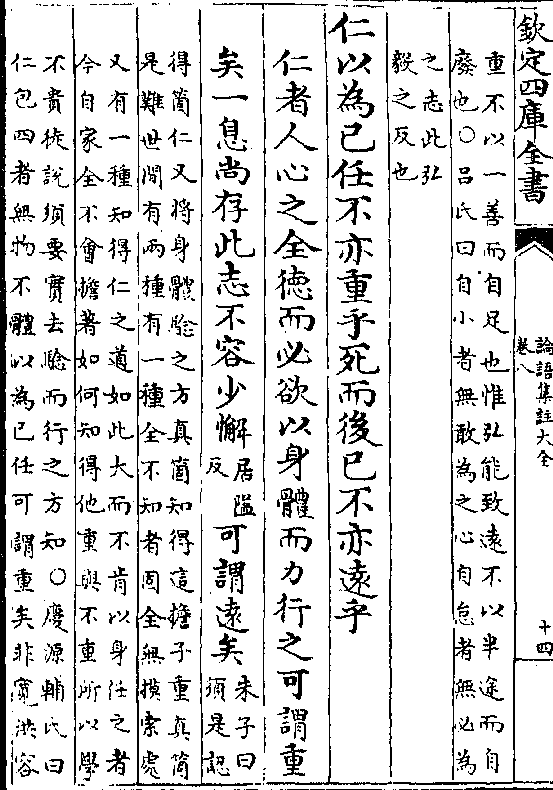 欽定四庫全書
論語集註大全
卷八
十四
重不以一善而自足也惟弘能致逺不以半途而自
廢也○吕氏曰自小者無敢為之心自怠者無必為
之志此弘
毅之反也
仁以為已任不亦重乎死而後已不亦逺乎
仁者人心之全徳而必欲以身體而力行之可謂重
矣一息尚存此志不容少懈居隘
反
可謂逺矣
朱子曰
須是認
得箇仁又將身體驗之方真箇知得這擔子重真箇
是難世間有兩種有一種全不知者固全無摸索處
又有一種知得仁之道如此大而不肯以身任之者
今自家全不曾擔著如何知得他重與不重所以學
不貴徒說須要實去驗而行之方知○慶源輔氏曰
仁包四者無物不體以為已任可謂重矣非寛洪容